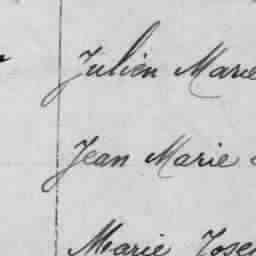 Julien Marie
Jean Marie
Marie Jose